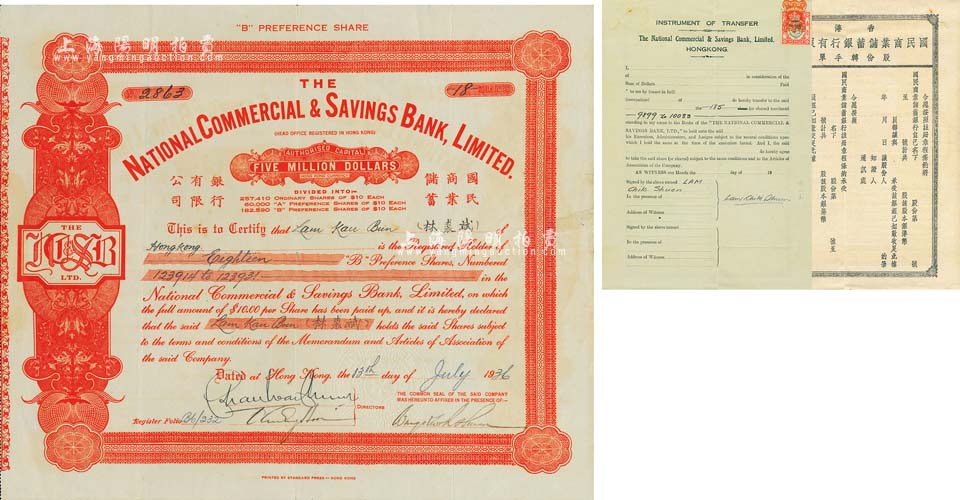 "B" PREFERENCE SHARE
上海陽明拍賣
www.yangmingauction.com
2863
18
THE
NATIONAL COMMERCIAL & SAVINGS BANK, LIMITED.
(HEAD OFFICE REGISTERED IN HONG KONG)
AUTHORISED CAPITAL
FIVE MILLION DOLLARS
HONG KONG CURRENCY
DIVIDED INTO:-
257,410 ORDINARY SHARES OF $10 EACH
60,000 "A" PREFERENCE SHARES OF $10 EACH
182,590 "B" PREFERENCE SHARES OF $10 EACH
國民商業儲蓄
銀行有限公司
This is to Certify that Lam Kau Bun (林裘斌) of
Hongkong. is the Registered Holder of
Eighteen "B" Preference Shares, Numbered
123914 to 123931 in the
National Commercial & Savings Bank, Limited, on which
the full amount of $10.00 per Share has been paid up, and it is hereby declared
that the said Lam Kau Bun (林裘斌) holds the said Shares subject
to the terms and conditions of the Memorandum and Articles of Association of
the said Company.
Dated at Hong Kong, the 13th day of July 1936
THE COMMON SEAL OF THE SAID COMPANY
WAS HEREUNTO AFFIXED IN THE PRESENCE OF:—
DIRECTORS
Register Folio B6/232
THE
NC&SB
LTD.
PRINTED BY STANDARD PRESS—HONG KONG
INSTRUMENT OF TRANSFER
The National Commercial & Savings Bank, Limited.
HONGKONG.
I,
of in consideration of the
Sum of Dollars Paid
to me by (name in full)
(occupation) of
do hereby transfer to the said
the 185 share (or shares) numbered
9899 to 10083
standing in my name in the Books of the "THE NATIONAL COMMERCIAL &
SAVINGS BANK, LTD.," to hold unto the said
his Executors, Administrators, and Assigns subject to the several conditions upon
which I hold the same at the time of the execution hereof. And I, the said
do hereby agree
to take the said share (or shares) subject to the same conditions and to the Articles of
Association of the Company.
AS WITNESS our Hands the day of 19
Signed by the above named LAM
Chik Shuen
In the presence of Lam Chik Shuen
Address of Witness
Signed by the above named
In the presence of
Address of Witness
香港
國民商業儲蓄銀行有限
股份轉手單